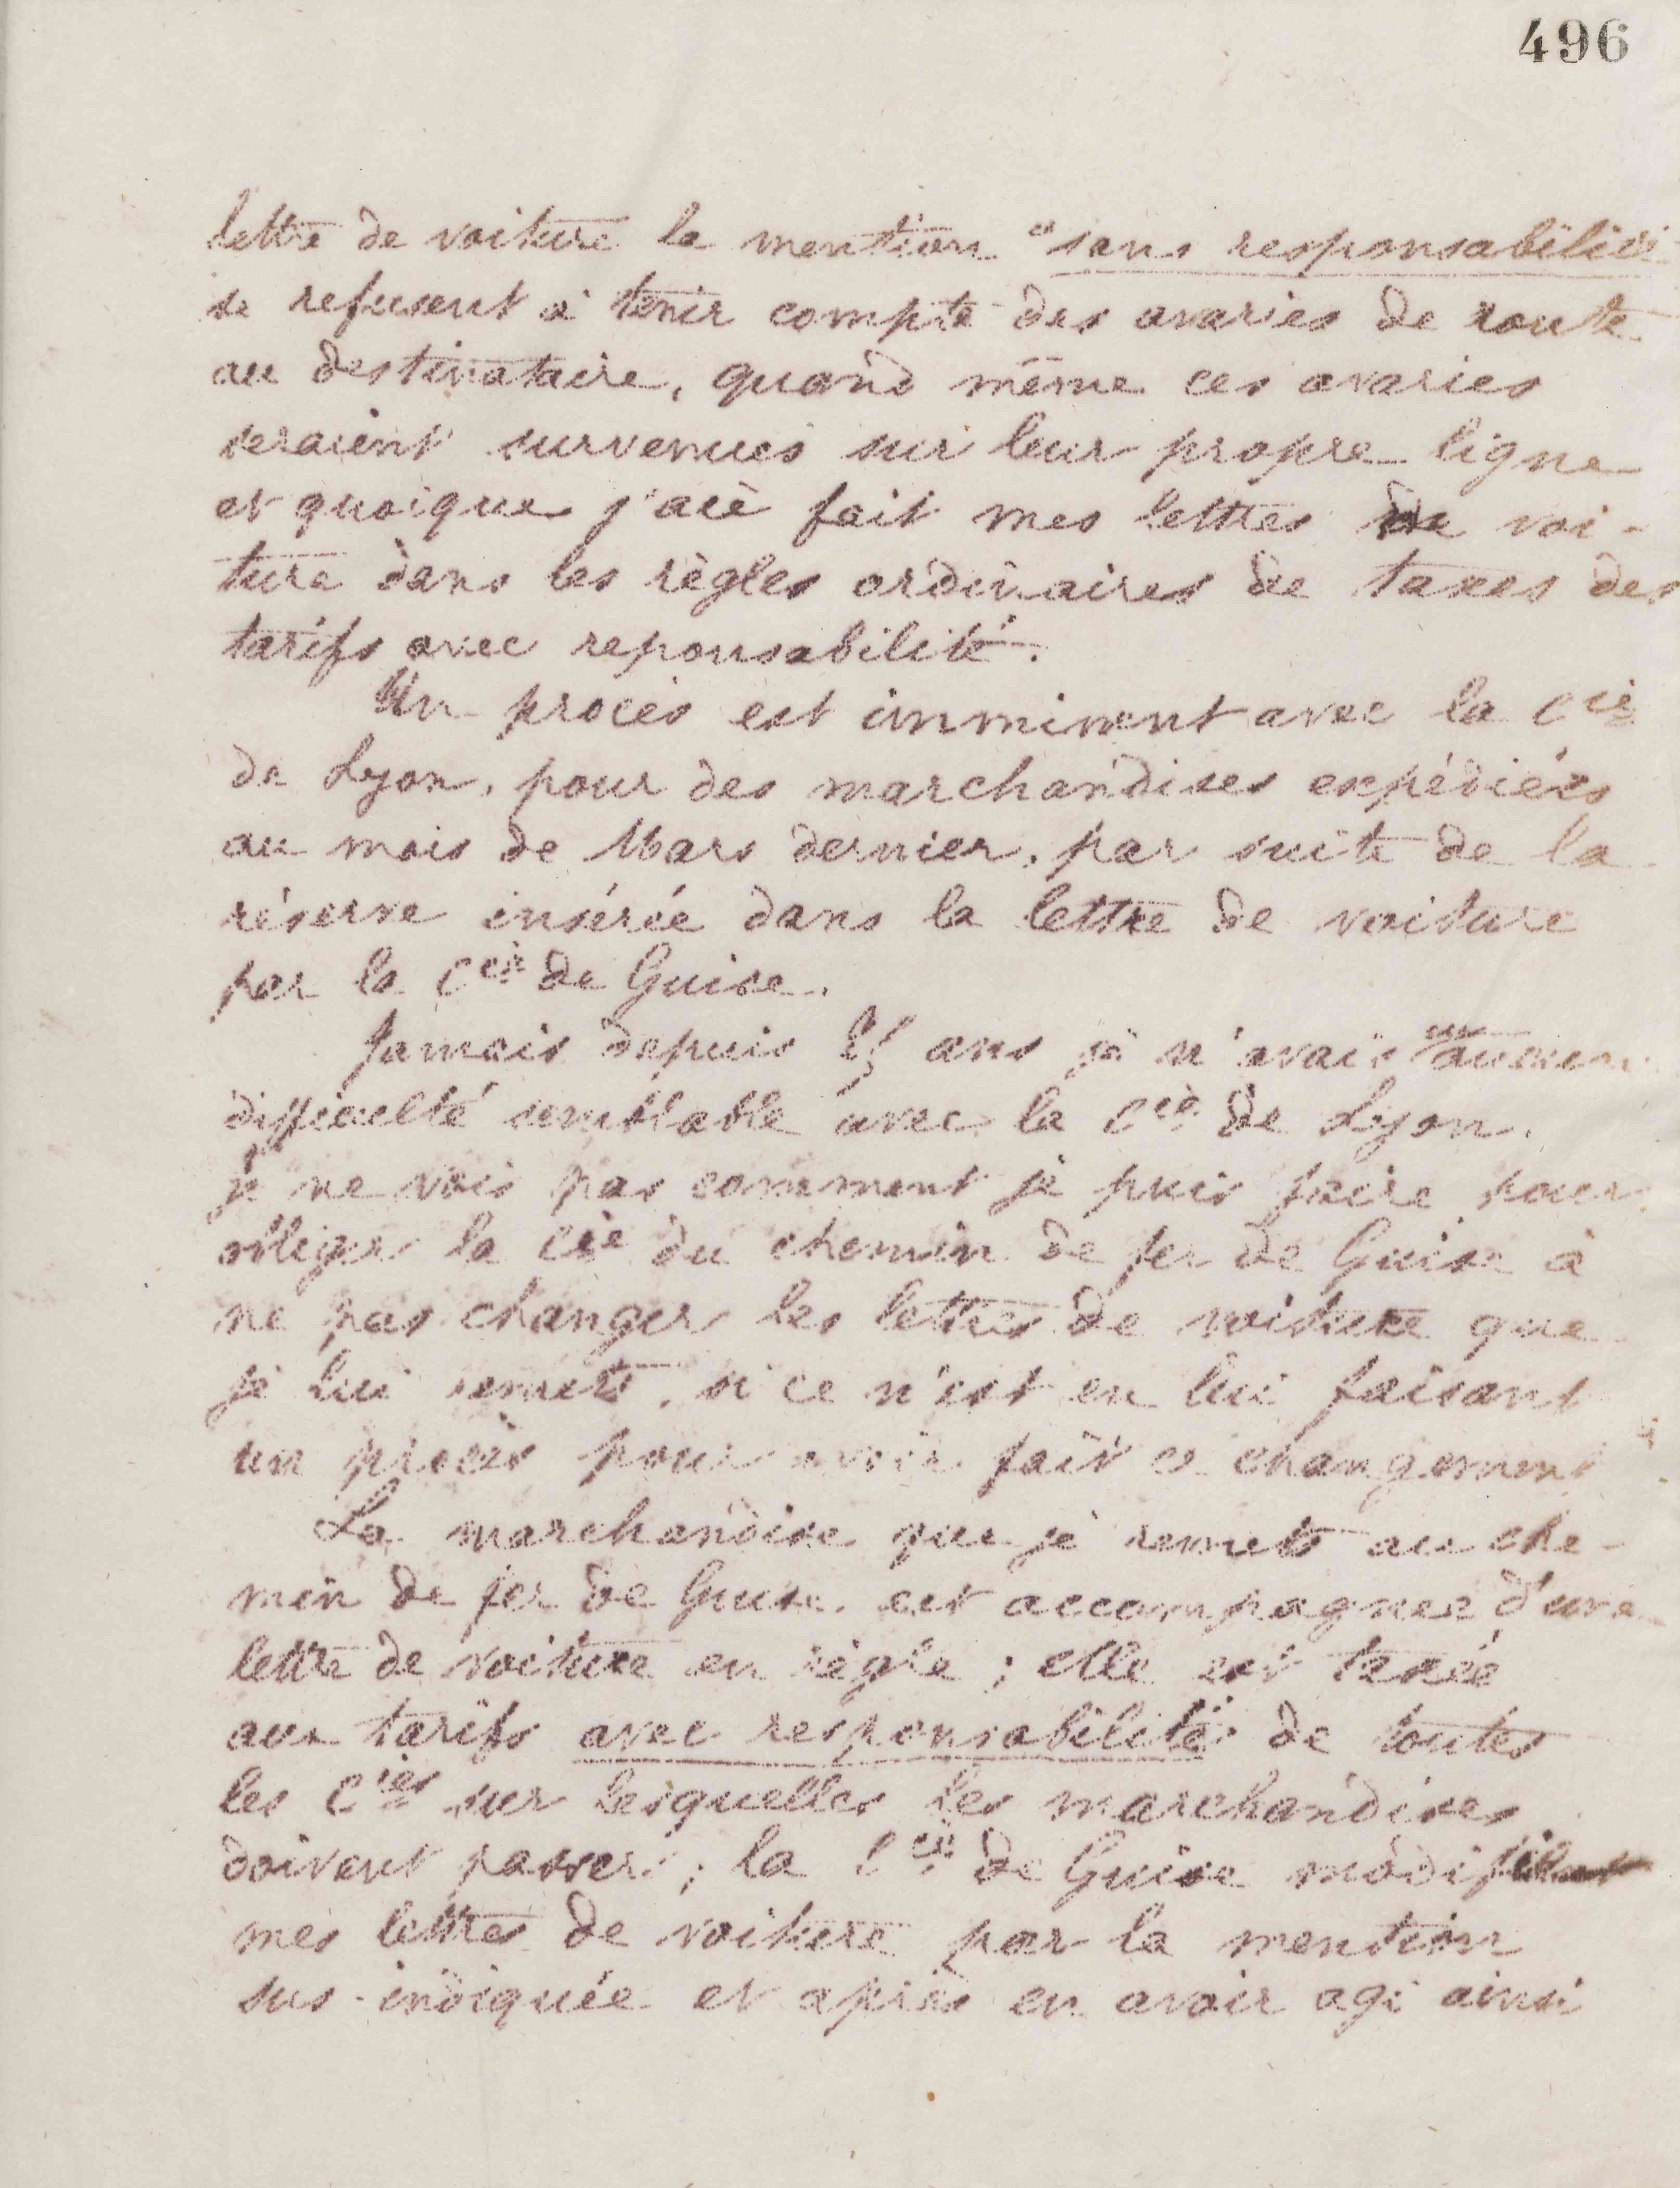 496
lettre de voiture la mention "sans responsabilité
se refusent à tenir compte des avaries de route
au destinataire, quand même ces avaries
seraient survenues sur leur propre ligne
et quoique j'aie fait mes lettres de voi-
ture dans les règles ordinaires de taxes des
tarifs avec reponsabilité.
Un procès est imminent avec la Cie
de Lyon, pour des marchandises expédiées
au mois de Mars dernier, par suite de la
réserve insérée dans la lettre de voiture
par la Cie de Guise.
Jamais depuis ans je n'avais eu aucune
difficulté semblable avec la Cie de Lyon.
je ne vois pas comment je puis faire pour
obliger la Cie du chemin de fer de Guise à
ne pas changer les lettres de voiture que
je lui remets, si ce n'est en lui faisant
un procès pour avoir fait ce changement
La marchandise que je remets au che-
min de fer de Guise est accompagnée d'une
lettre de voiture en règle ; elle est taxée
aux tarifs avec responsabilité de toutes
les Cies sur lesquelles les marchandises
doivent passer ; la Cie de Guise modifiant
mes lettres de voiture par la mention
sus-indiquée et après en avoir agi ainsi